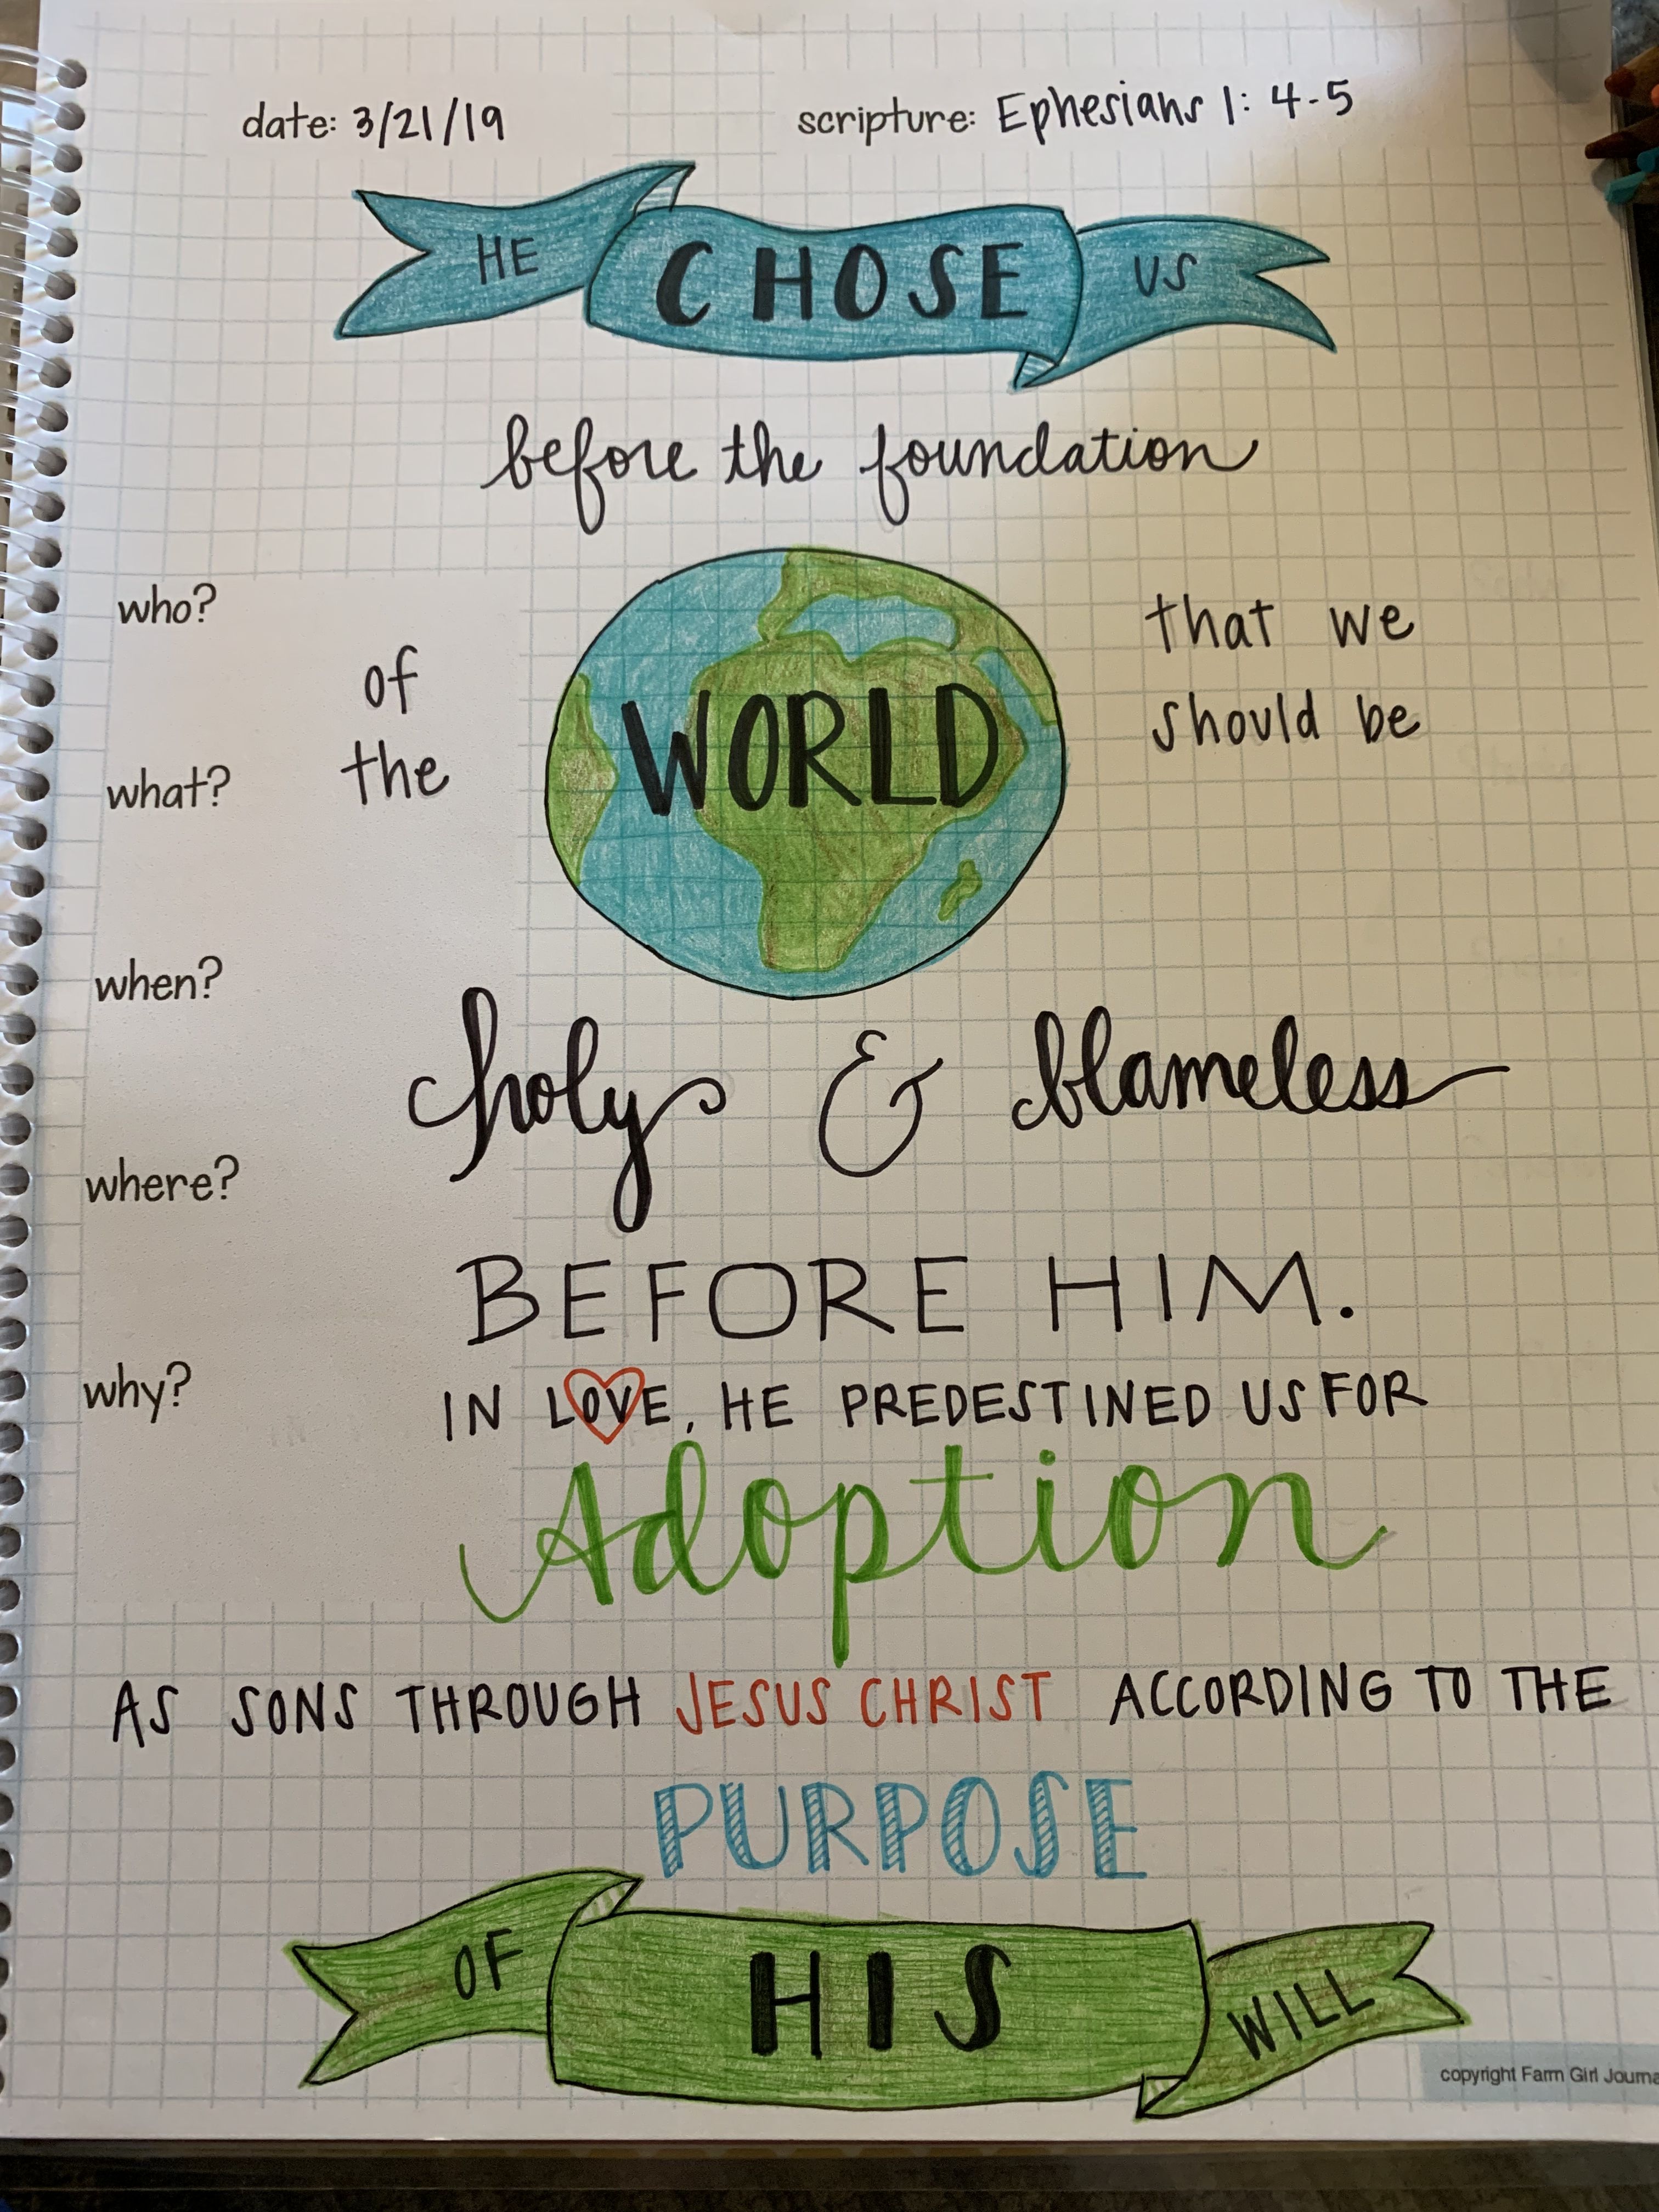 date: 3/21/19 scripture: Ephesians 1: 4-5
HE CHOSE US
before the foundation
who?
of
the
WORLD
that we
should be
what?
when?
holy & blameless
where?
BEFORE HIM.
why?
IN LOVE, HE PREDESTINED US FOR
Adoption
AS SONS THROUGH JESUS CHRIST ACCORDING TO THE
PURPOSE
OF HIS WILL
copyright Farm Girl Journa